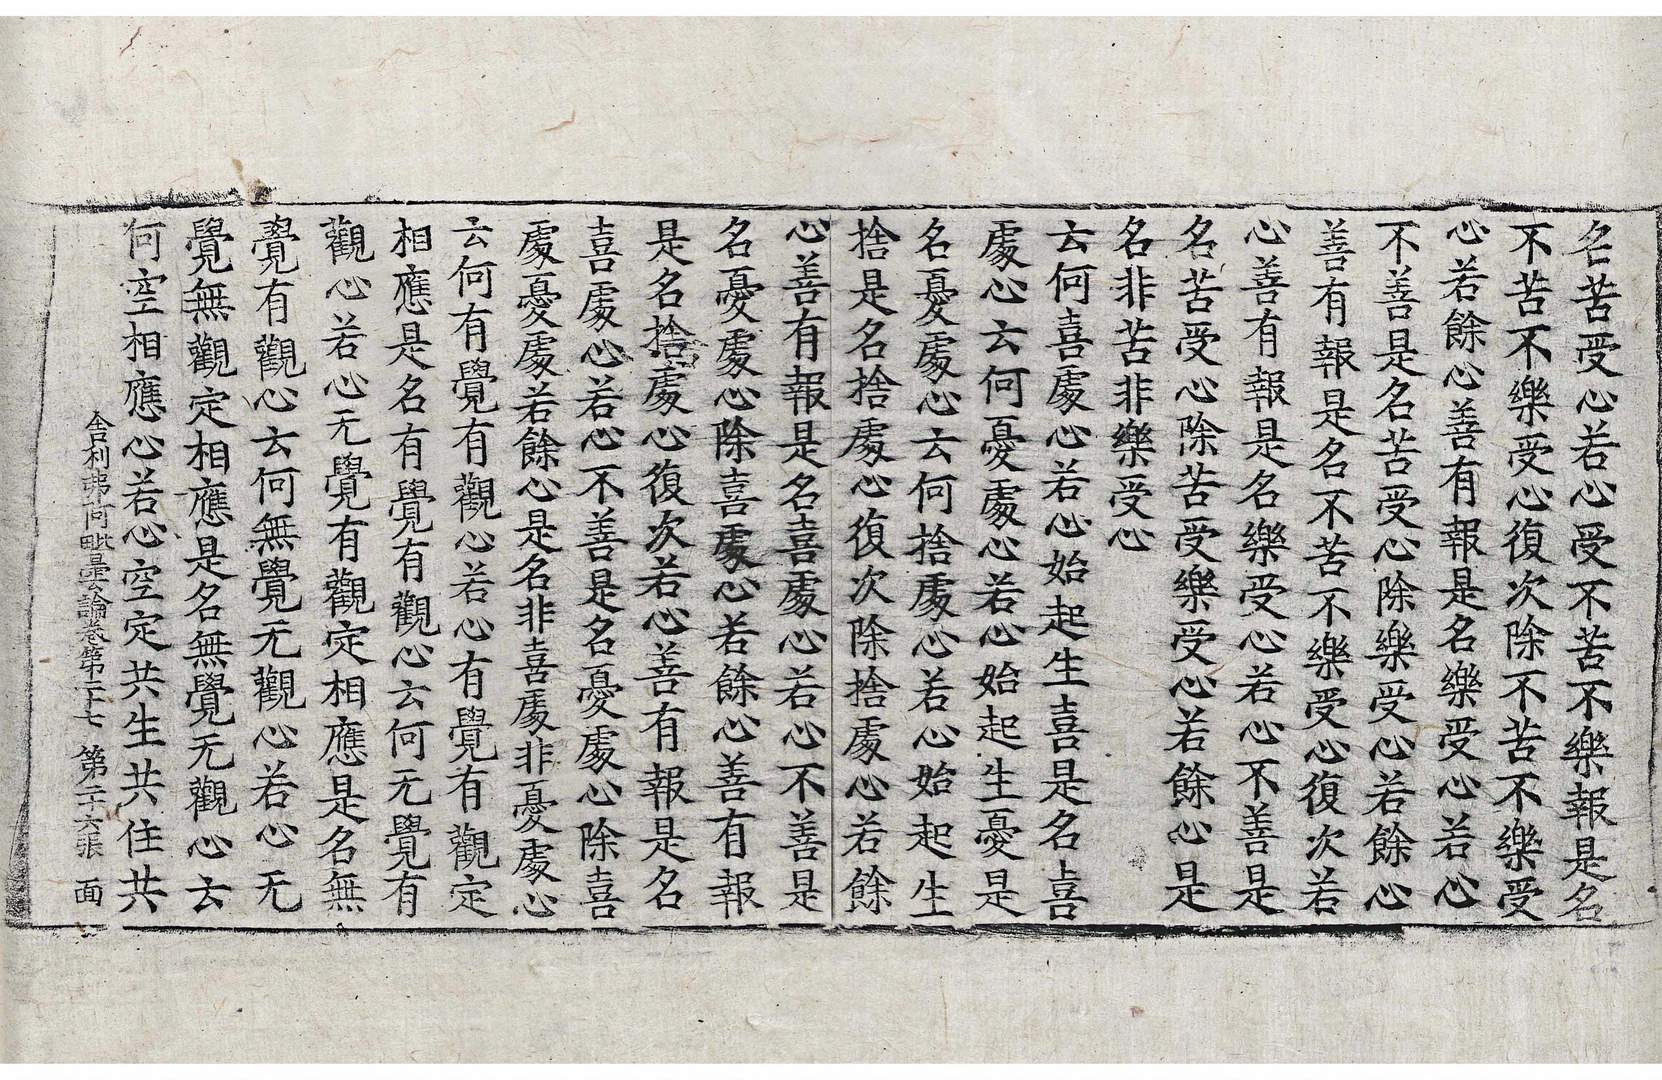 名苦受心若心受不苦不樂報是名
不苦不樂受心復次除不苦不樂受
心若餘心善有報是名樂受心若心
不善是名苦受心除樂受心若餘心
善有報是名不苦不樂受心復次若
心善有報是名樂受心若心不善是
名苦受心除苦受樂受心若餘心是
名非苦非樂受心
云何喜處心若心始起生喜是名喜
處心云何憂處心若心始起生憂是
名憂處心云何捨處心若心始起生
捨是名捨處心復次除捨處心若餘
心善有報是名喜處心若心不善是
名憂處心除喜處心若餘心善有報
是名捨處心復次若心善有報是名
喜處心若心不善是名憂處心除喜
處憂處若餘心是名非喜處非憂處心
云何有覺有觀心若心有覺有觀定
相應是名有覺有觀心云何无覺有
觀心若心无覺有觀定相應是名無
覺有觀心云何無覺无觀心若心无
覺無觀定相應是名無覺无觀心云
何空相應心若心空定共生共住共
舍利弗阿毗曇論卷第二十七 第二十六張 面